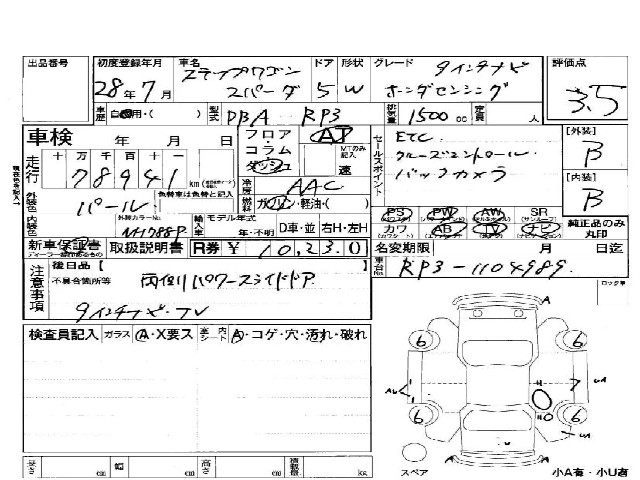 出品番号 初度登録年月 車名 ドア 形状 グレード 評価点
28年7月 ステップワゴン スパーダ 5 W 9インチナビ ホンダセンシング 3.5
車歴 自家用・( ) 型式 DBA-RP3 排気量 1500cc 定員 人
車検 年 月 日 フロア・コラム・ダッシュ AT MTのみ記入 速
走行 十 万 千 百 十 一
78941 km
冷房 AAC
ガソリン・軽油・( )
セールスポイント
ETC
クルーズコントロール
バックカメラ
[外装] B
[内装] B
外装色 パール 色替車は色替と記入
内装色 外装カラーNo. NH788P
輸入車 モデル年式 年・不明 D車・並 右H・左H
PS PW AW SR
カワ AB TV ナビ
純正品のみ丸印
新車保証書 取扱説明書 R券 ¥10,230
名変期限 月 日迄
車台No. RP3-1104989
注意事項 後日品【 】
不具合箇所等 両側パワースライドドア
9インチナビ・TV
ロック車
検査員記入 ガラス A・X要ス 室内シート A・コゲ・穴・汚れ・破れ
A
6 6
A
6 6
A
スペア 小A有・小U有
長さ cm 幅 cm 高さ cm 積載量 KG